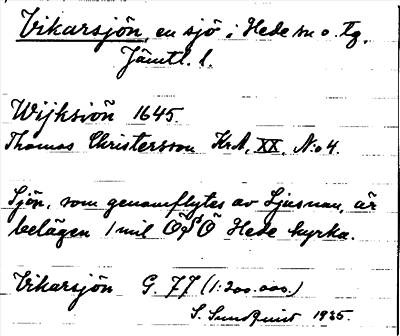 Vikarsjön, en sjö i Hede sn o. tg.
Jämtl. l.
Wijksiöñ 1645.
Thomas Christersson KrA, XX, N:o 4.
Sjön, som genomflytes av Ljusnan, är
belägen 1 mil ÖSÖ Hede kyrka.
Vikarsjön G. 77 (1:200.000.)
S. Sundquist 1935.